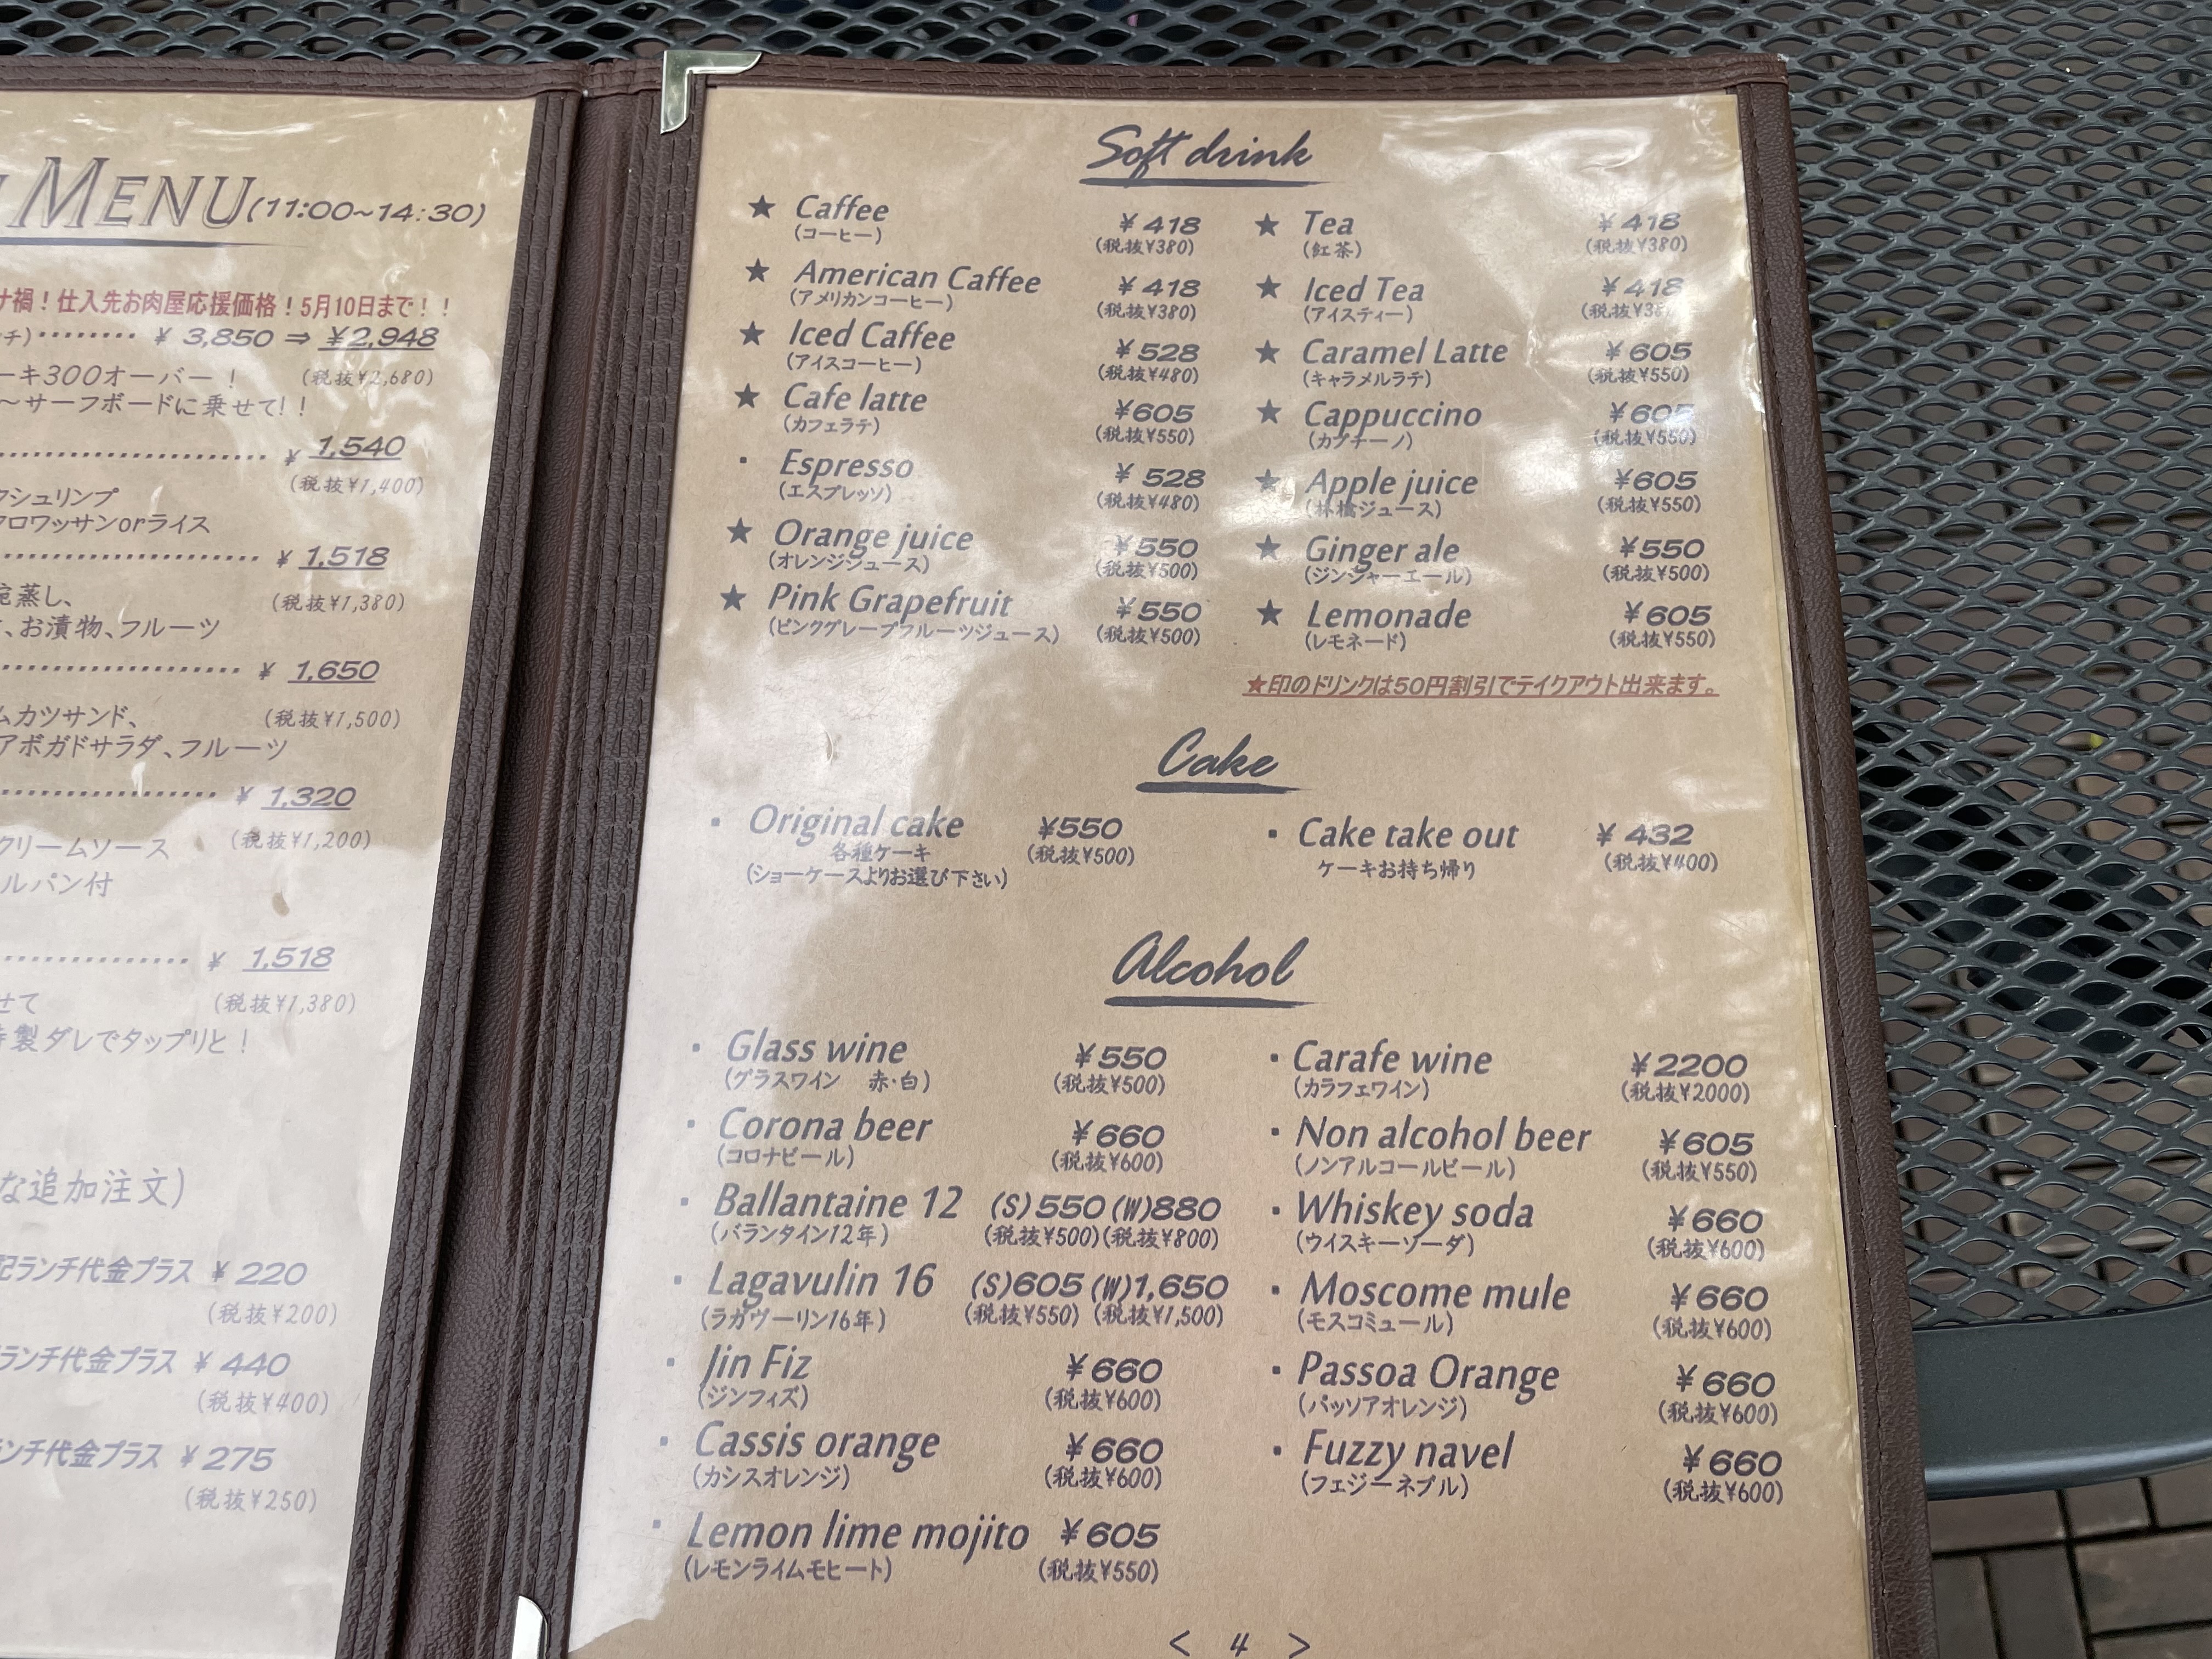 MENU(11:00~14:30)
禍！仕入先お肉屋応援価格！5月10日まで！！
チ)········ ¥ 3,850 ⇒ ¥2,948
ーキ300オーバー！ (税抜¥2,680)
～サーフボードに乗せて!！
¥ 1,540
(税抜¥1,400)
シュリンプ
クロワッサンorライス
¥ 1,518
蒸し、 (税抜¥1,380)
、お漬物、フルーツ
¥ 1,650
ムカツサンド、 (税抜¥1,500)
アボガドサラダ、フルーツ
¥ 1,320
クリームソース (税抜¥1,200)
ルパン付
¥ 1,518
せて (税抜¥1,380)
製ダレでタップリと！
な追加注文)
記ランチ代金プラス ¥ 220
(税抜¥200)
ランチ代金プラス ¥ 440
(税抜¥400)
ランチ代金プラス ¥ 275
(税抜¥250)
Soft drink
★ Caffee ¥ 418
(コーヒー) (税抜¥380)
★ American Caffee ¥ 418
(アメリカンコーヒー) (税抜¥380)
★ Iced Caffee ¥ 528
(アイスコーヒー) (税抜¥480)
★ Cafe latte ¥605
(カフェラテ) (税抜¥550)
・ Espresso ¥ 528
(エスプレッソ) (税抜¥480)
★ Orange juice ¥550
(オレンジジュース) (税抜¥500)
★ Pink Grapefruit ¥550
(ピンクグレープフルーツジュース) (税抜¥500)
★ Tea ¥ 418
(紅茶) (税抜¥380)
★ Iced Tea ¥ 418
(アイスティー) (税抜¥38
★ Caramel Latte ¥ 605
(キャラメルラテ) (税抜¥550)
★ Cappuccino ¥ 605
(カプチーノ) (税抜¥550)
★ Apple juice ¥605
(林檎ジュース) (税抜¥550)
★ Ginger ale ¥550
(ジンジャーエール) (税抜¥500)
★ Lemonade ¥ 605
(レモネード) (税抜¥550)
★印のドリンクは50円割引でテイクアウト出来ます。
Cake
・ Original cake ¥550
各種ケーキ (税抜¥500)
(ショーケースよりお選び下さい)
・ Cake take out ¥ 432
ケーキお持ち帰り (税抜¥400)
Alcohol
・ Glass wine ¥550
(グラスワイン 赤・白) (税抜¥500)
・ Corona beer ¥660
(コロナビール) (税抜¥600)
・ Ballantaine 12 (S)550 (W)880
(バランタイン12年) (税抜¥500)(税抜¥800)
・ Lagavulin 16 (S)605 (W)1,650
(ラガヴーリン16年) (税抜¥550) (税抜¥1,500)
・ Jin Fiz ¥660
(ジンフィズ) (税抜¥600)
・ Cassis orange ¥660
(カシスオレンジ) (税抜¥600)
・ Lemon lime mojito ¥605
(レモンライムモヒート) (税抜¥550)
・ Carafe wine ¥2200
(カラフェワイン) (税抜¥2000)
・ Non alcohol beer ¥605
(ノンアルコールビール) (税抜¥550)
・ Whiskey soda ¥660
(ウイスキーソーダ) (税抜¥600)
・ Moscome mule ¥660
(モスコミュール) (税抜¥600)
・ Passoa Orange ¥660
(パッソアオレンジ) (税抜¥600)
・ Fuzzy navel ¥660
(フェジーネブル) (税抜¥600)
< 4 >